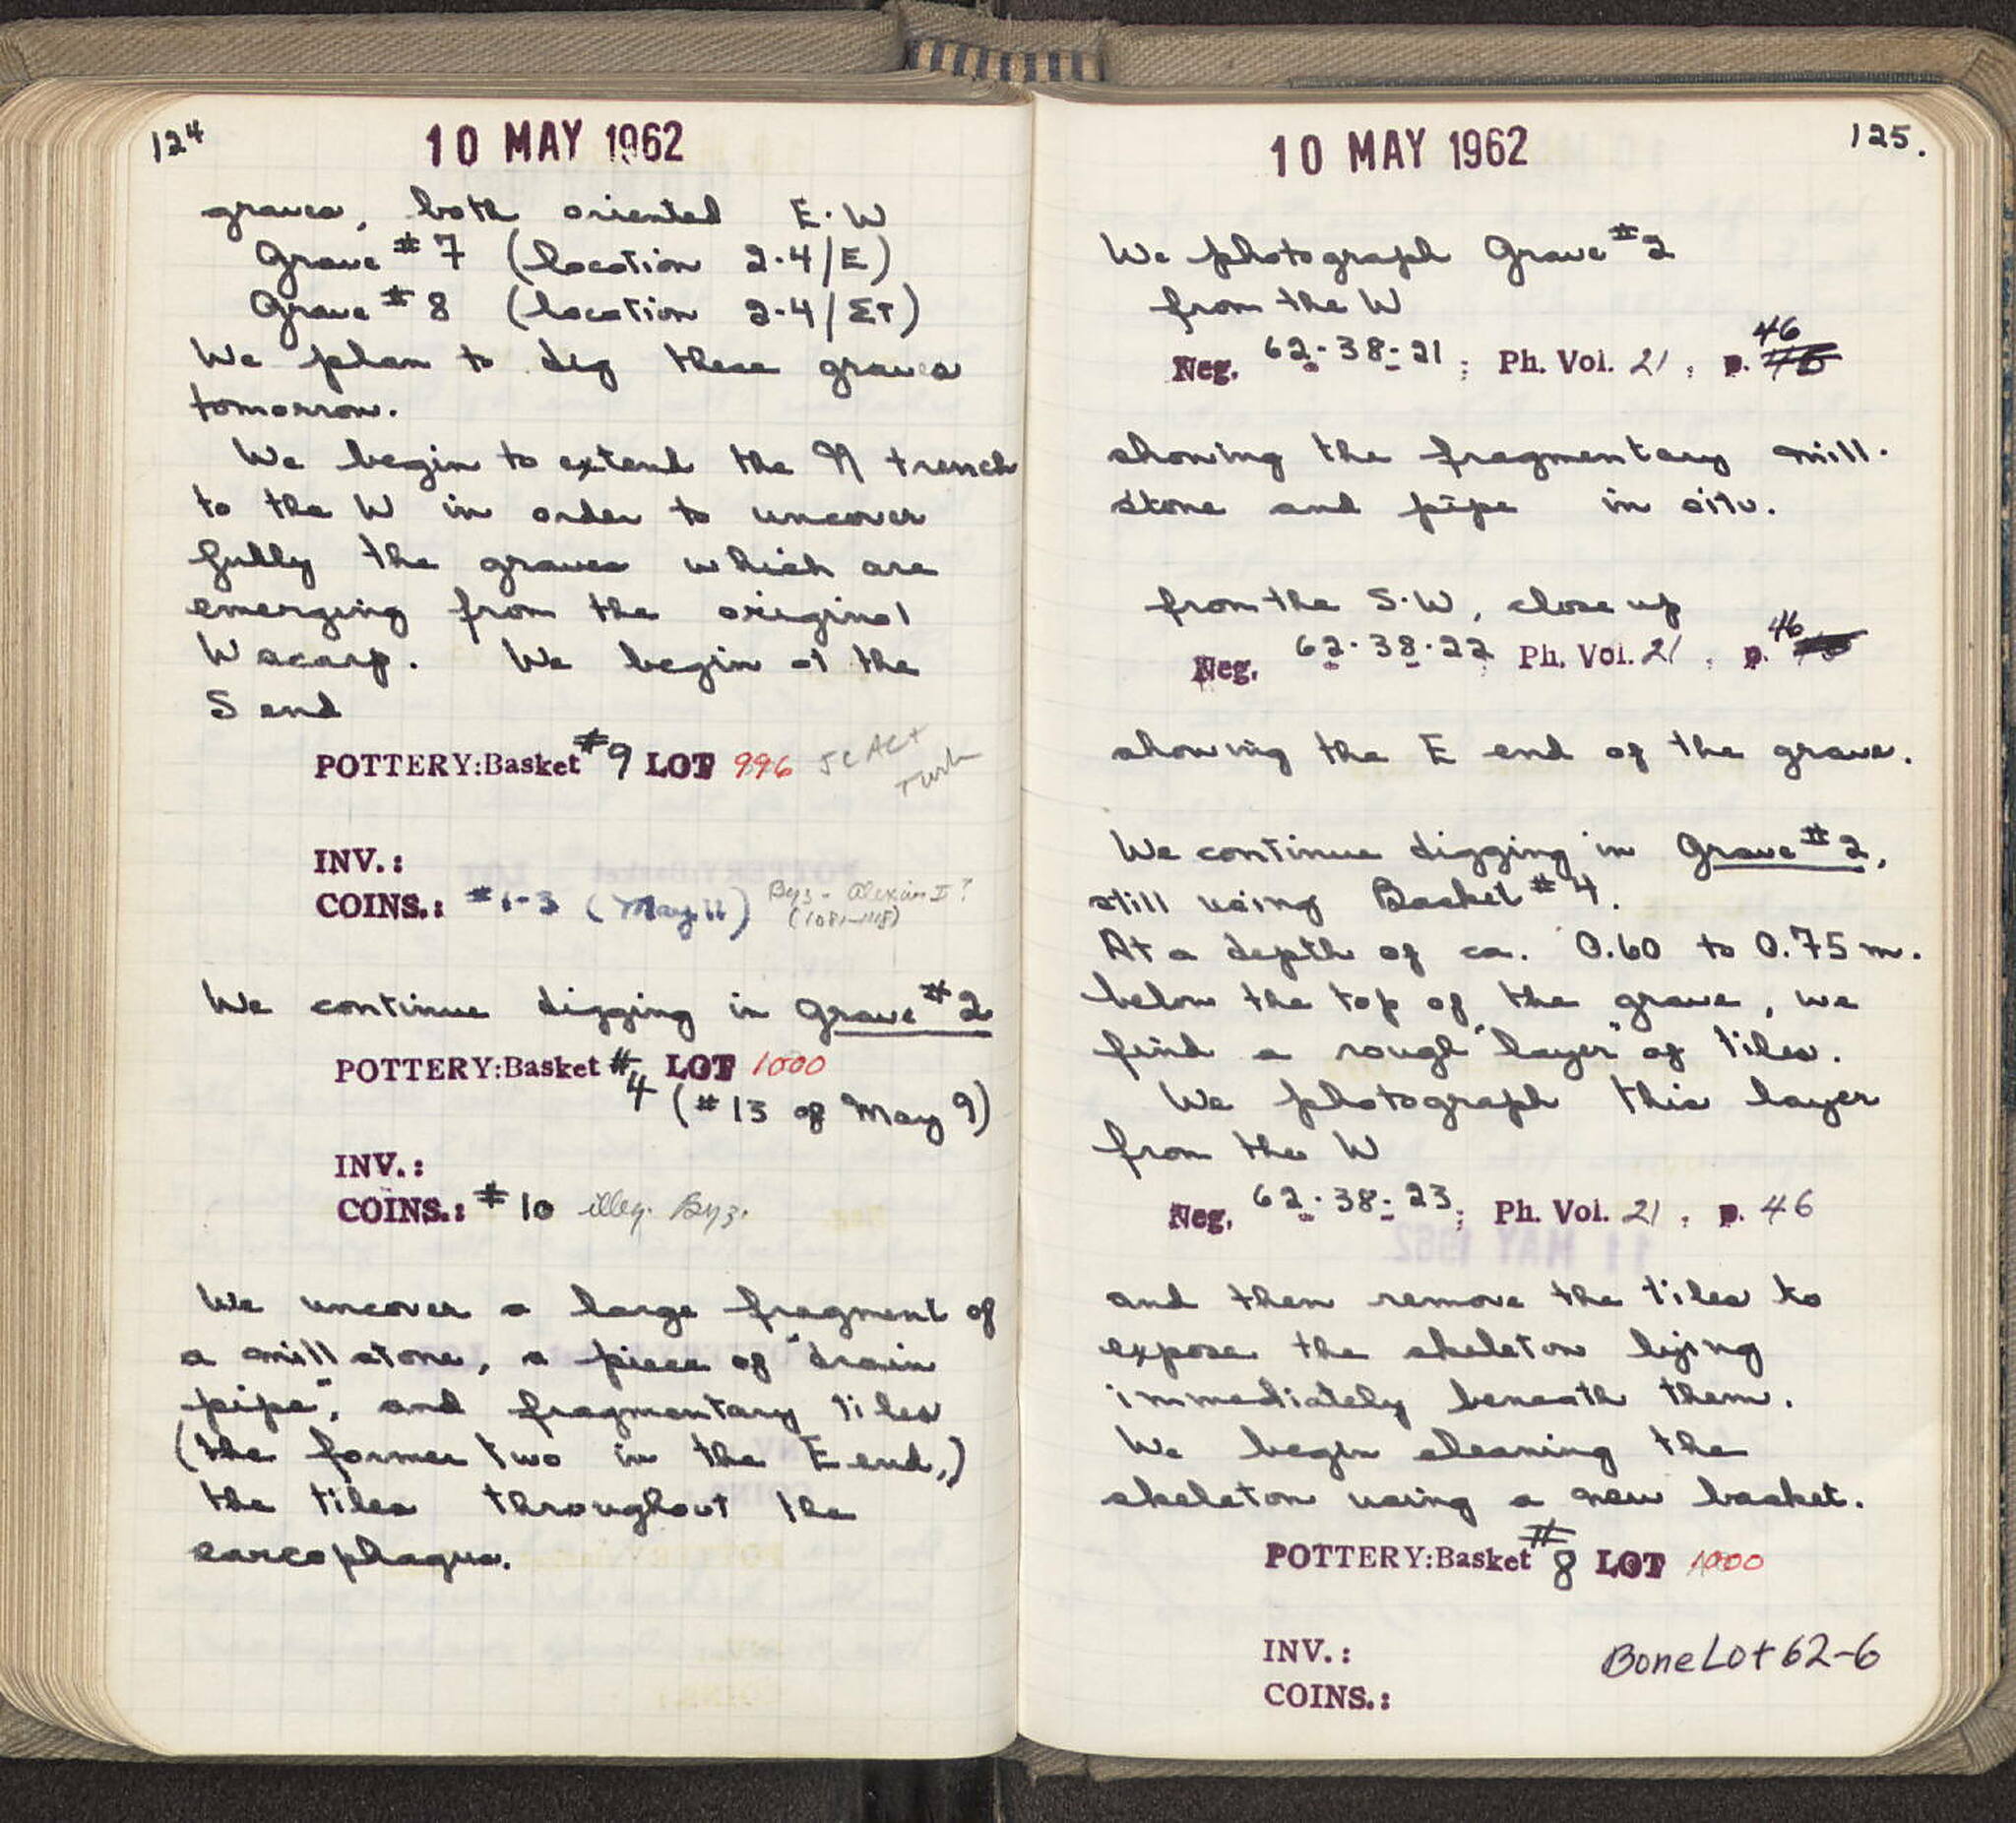 124
10 MAY 1962
graves, both oriented E-W
Grave #7 (location 2-4/E)
Grave #8 (location 2-4/ΣT)
We plan to dig these graves
tomorrow.
We begin to extend the N trench
to the W in order to uncover
fully the graves which are
emerging from the original
W scarp. We begin at the
S end
POTTERY:Basket #9 LOT 996
Turk
INV.:
COINS.: #1-3 (May 11) Byz - Alexius I?
(1081-1118)
We continue digging in Grave #2
POTTERY:Basket #4 LOT 1000
(#13 of May 9)
INV.:
COINS.: #10 illeg. Byz.
We uncover a large fragment of
a millstone, a piece of "drain
pipe", and fragmentary tiles
(the former two in the E end,)
the tiles throughout the
sarcophagus.
125.
10 MAY 1962
We photograph Grave #2
from the W
Neg. 62-38-21; Ph. Vol. 21, p. 46
showing the fragmentary mill-
stone and pipe in situ.
from the S-W, close up
Neg. 62-38-22; Ph. Vol. 21, p. 46
showing the E end of the grave.
We continue digging in Grave #2,
still using Basket #4.
At a depth of ca. 0.60 to 0.75 m.
below the top of the grave, we
find a rough "layer" of tiles.
We photograph this layer
from the W
Neg. 62-38-23; Ph. Vol. 21, p. 46
and then remove the tiles to
expose the skeleton lying
immediately beneath them.
We begin cleaning the
skeleton using a new basket.
POTTERY:Basket #8 LOT 1000
INV.:
Bone Lot 62-6
COINS.: